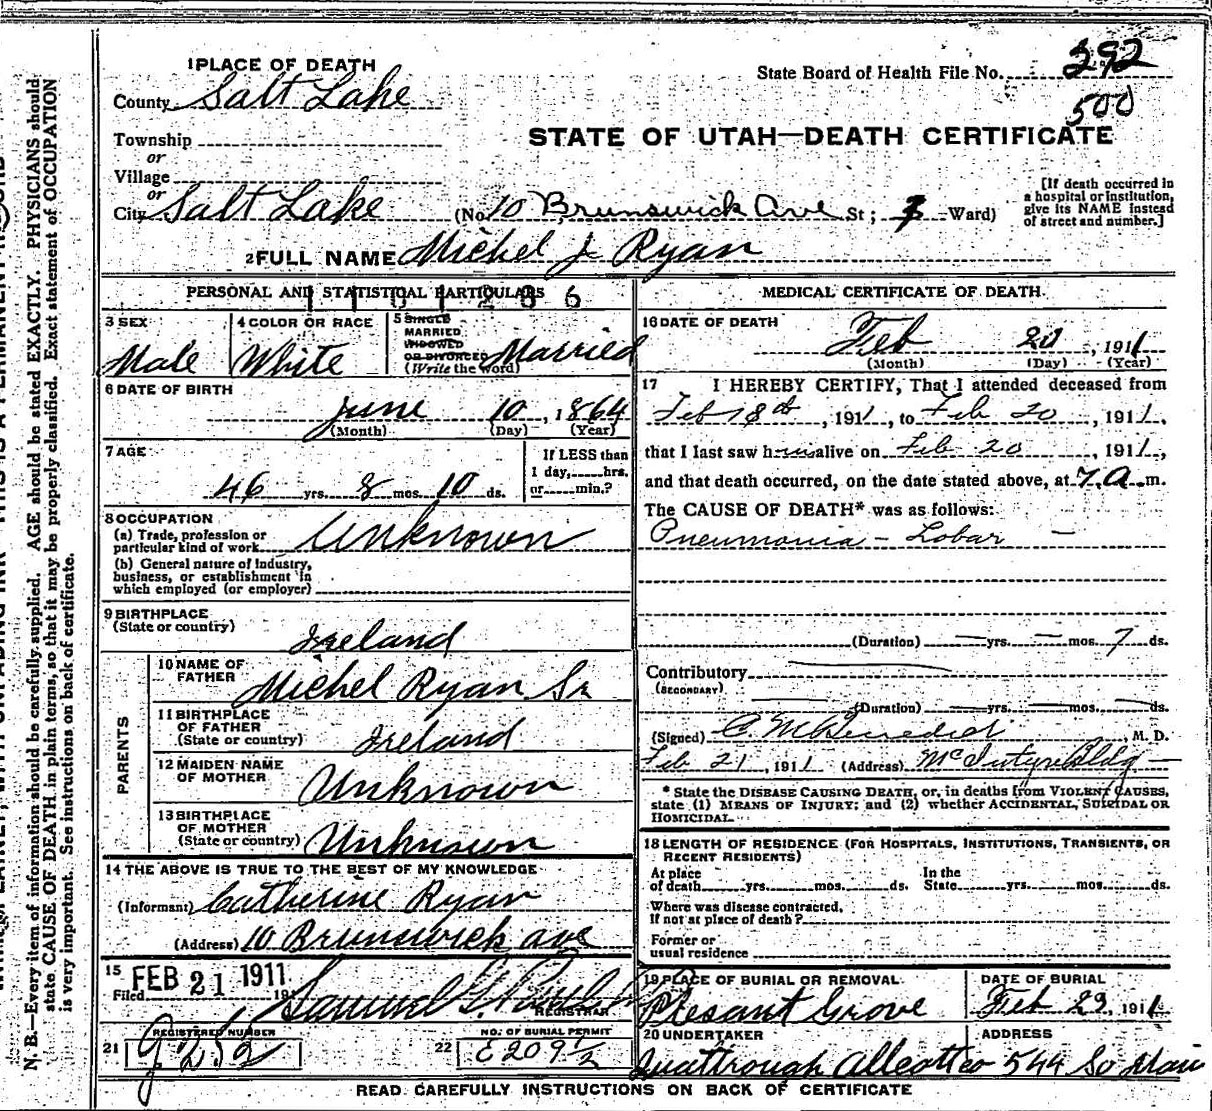 1 PLACE OF DEATH
State Board of Health File No. 292
County Salt Lake
500
STATE OF UTAH—DEATH CERTIFICATE
Township
or
Village
or
City Salt Lake (No. 10 Brunswick Ave St; Ward)
[If death occurred in
a hospital or institution,
give its NAME instead
of street and number.]
2 FULL NAME Michel J Ryan
PERSONAL AND STATISTICAL PARTICULARS
3 SEX
Male
4 COLOR OR RACE
White
5 SINGLE
MARRIED
WIDOWED
OR DIVORCED
(Write the word)
Married
6 DATE OF BIRTH
June 10, 1864
(Month) (Day) (Year)
7 AGE
46 yrs. 8 mos. 10 ds.
If LESS than
1 day, hrs.
or min.?
8 OCCUPATION
(a) Trade, profession or
particular kind of work Unknown
(b) General nature of industry,
business, or establishment in
which employed (or employer)
9 BIRTHPLACE
(State or country)
Ireland
PARENTS
10 NAME OF
FATHER
Michel Ryan Sr
11 BIRTHPLACE
OF FATHER
(State or country) Ireland
12 MAIDEN NAME
OF MOTHER Unknown
13 BIRTHPLACE
OF MOTHER
(State or country) Unknown
14 THE ABOVE IS TRUE TO THE BEST OF MY KNOWLEDGE
(Informant) Catherine Ryan
(Address) 10 Brunswick ave
15
Filed FEB 21 1911 191
Samuel G.
REGISTRAR
21 REGISTERED NUMBER
22 NO. OF BURIAL PERMIT
MEDICAL CERTIFICATE OF DEATH
16 DATE OF DEATH
Feb 20, 1911
(Month) (Day) (Year)
17 I HEREBY CERTIFY, That I attended deceased from
Feb 18th, 1911, to Feb 20, 1911,
that I last saw him alive on Feb 20, 1911,
and that death occurred, on the date stated above, at 7 A m.
The CAUSE OF DEATH* was as follows:
Pneumonia - Lobar
(Duration) yrs. mos. 7 ds.
Contributory
(SECONDARY)
(Duration) yrs. mos. ds.
(Signed) M. D.
Feb 21, 1911 (Address) McIntyre Bldg
* State the DISEASE CAUSING DEATH, or, in deaths from VIOLENT CAUSES,
state (1) MEANS OF INJURY; and (2) whether ACCIDENTAL, SUICIDAL OR
HOMICIDAL.
18 LENGTH OF RESIDENCE (FOR HOSPITALS, INSTITUTIONS, TRANSIENTS, OR
RECENT RESIDENTS)
At place
of death yrs. mos. ds.
In the
State yrs. mos. ds.
Where was disease contracted,
If not at place of death?
Former or
usual residence
19 PLACE OF BURIAL OR REMOVAL
Plesant Grove
DATE OF BURIAL
Feb 1911
20 UNDERTAKER
ADDRESS
544 So Main
READ CAREFULLY INSTRUCTIONS ON BACK OF CERTIFICATE
N. B.—Every item of information should be carefully supplied. AGE should be stated EXACTLY. PHYSICIANS should
state CAUSE OF DEATH in plain terms, so that it may be properly classified. Exact statement of OCCUPATION
is very important. See instructions on back of certificate.